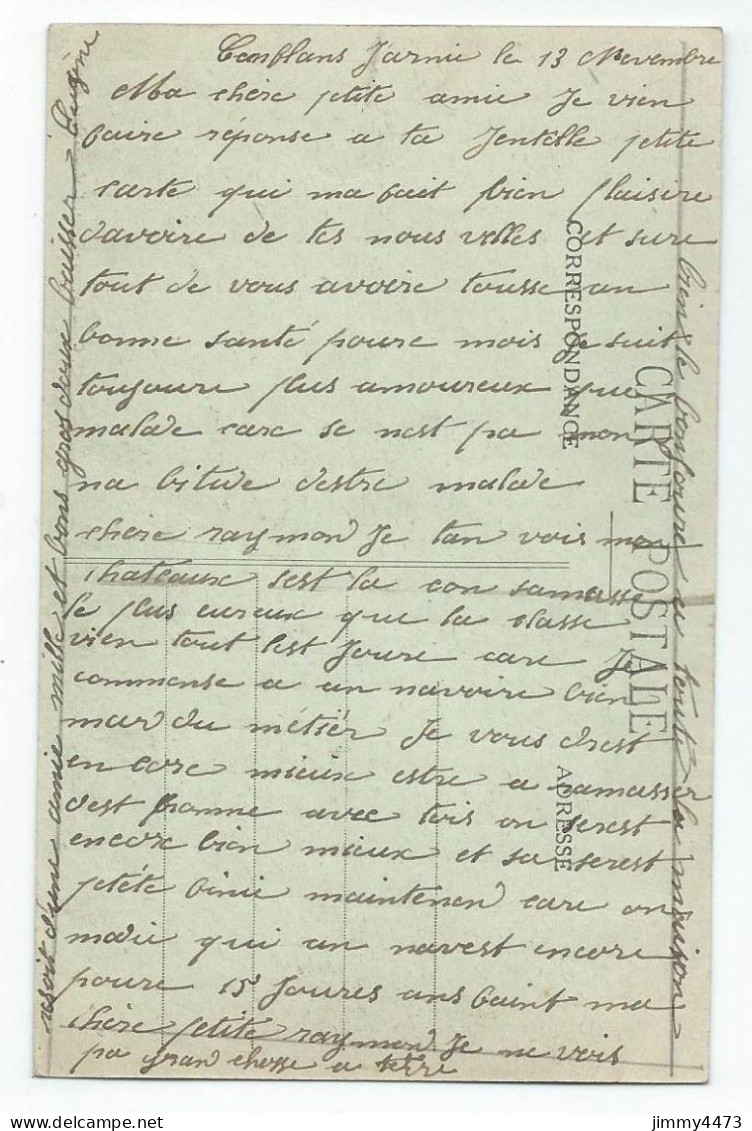 Conflans Jarnie le 13 Novembre
Ma chère petite amie Je vien
faire réponse a ta Jentille petite
carte qui ma fait bien plaisire
davoire de tes nous velles et sure
tout de vous avoire tousse an
bonne santé poure mois Je suit
toujoure plus amoureux que
malade care se nest pa mon
na bitude destre malade
chère raymond Je tan vois mon
chateaux sest la con samasse
le plus eureux que la classe
vien tout lest Joure care Je
commense a an navoire bien
mar du métiér Je vous drest
en core mieux estre a ramasser
dest pomme avec tois on serest
encore bien mieux et sa serest
petéte binie maintenend care on
madie qui an navest encore
poure 15 Joures ans faint ma
chère petite raymond Je ne vois
pa gran chosse a terre
resoit d'une amie mille et bons gros doux baisser Eugène
bien le bonjoure a toute la maison
CORRESPONDANCE
CARTE POSTALE
ADRESSE
jimmy4473